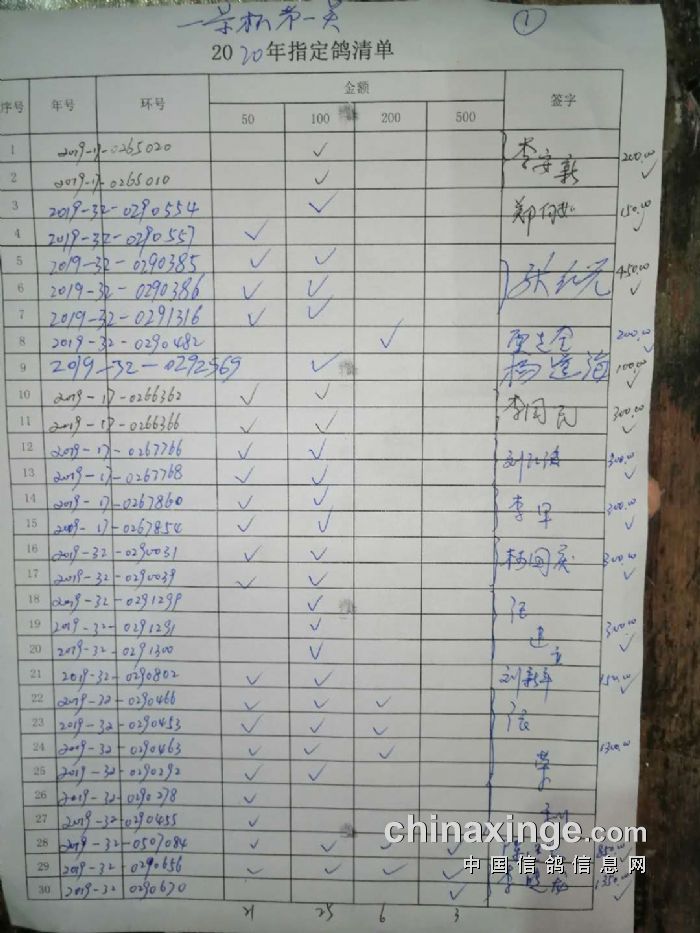 一 杯 第一关 ①
2020年指定鸽清单
序号 年号 环号 金额 签字
50 100 200 500
1 2019-17-0265020 ✓ 李安新 200.00 ✓
2 2019-17-0265010 ✓
3 2019-32-0290554 ✓ 郑 150.00 ✓
4 2019-32-0290557 ✓
5 2019-32-0290385 ✓ ✓ 张 450.00 ✓
6 2019-32-0290386 ✓ ✓
7 2019-32-0291316 ✓ ✓
8 2019-32-0290482 ✓ 200.00 ✓
9 2019-32-0292569 ✓ 杨 海 100.00 ✓
10 2019-17-0266362 ✓ ✓ 李国民 300.00 ✓
11 2019-17-0266366 ✓ ✓
12 2019-17-0267766 ✓ ✓ 刘 300.00 ✓
13 2019-17-0267768 ✓ ✓
14 2019-17-0267860 ✓ ✓ 李军 300.00 ✓
15 2019-17-0267854 ✓ ✓
16 2019-32-0290031 ✓ ✓ 杨国庆 300.00 ✓
17 2019-32-0290039 ✓ ✓
18 2019-32-0291299 ✓ 张建立 300.00 ✓
19 2019-32-0291291 ✓
20 2019-32-0291300 ✓
21 2019-32-0290802 ✓ ✓ 刘新年 150.00 ✓
22 2019-32-0290466 ✓ ✓ ✓ 张荣 1300.00 ✓
23 2019-32-0290453 ✓ ✓ ✓
24 2019-32-0290463 ✓ ✓ ✓
25 2019-32-0290292 ✓ ✓
26 2019-32-0290278 ✓
27 2019-32-0290455 ✓
28 2019-32-0507084 ✓ ✓ ✓ ✓ 850.00 ✓
29 2019-32-0290656 ✓ ✓ ✓ ✓ 李 1350.00 ✓
30 2019-32-0290670 ✓
21 25 6 3
chinaxinge.com
中国信鸽信息网